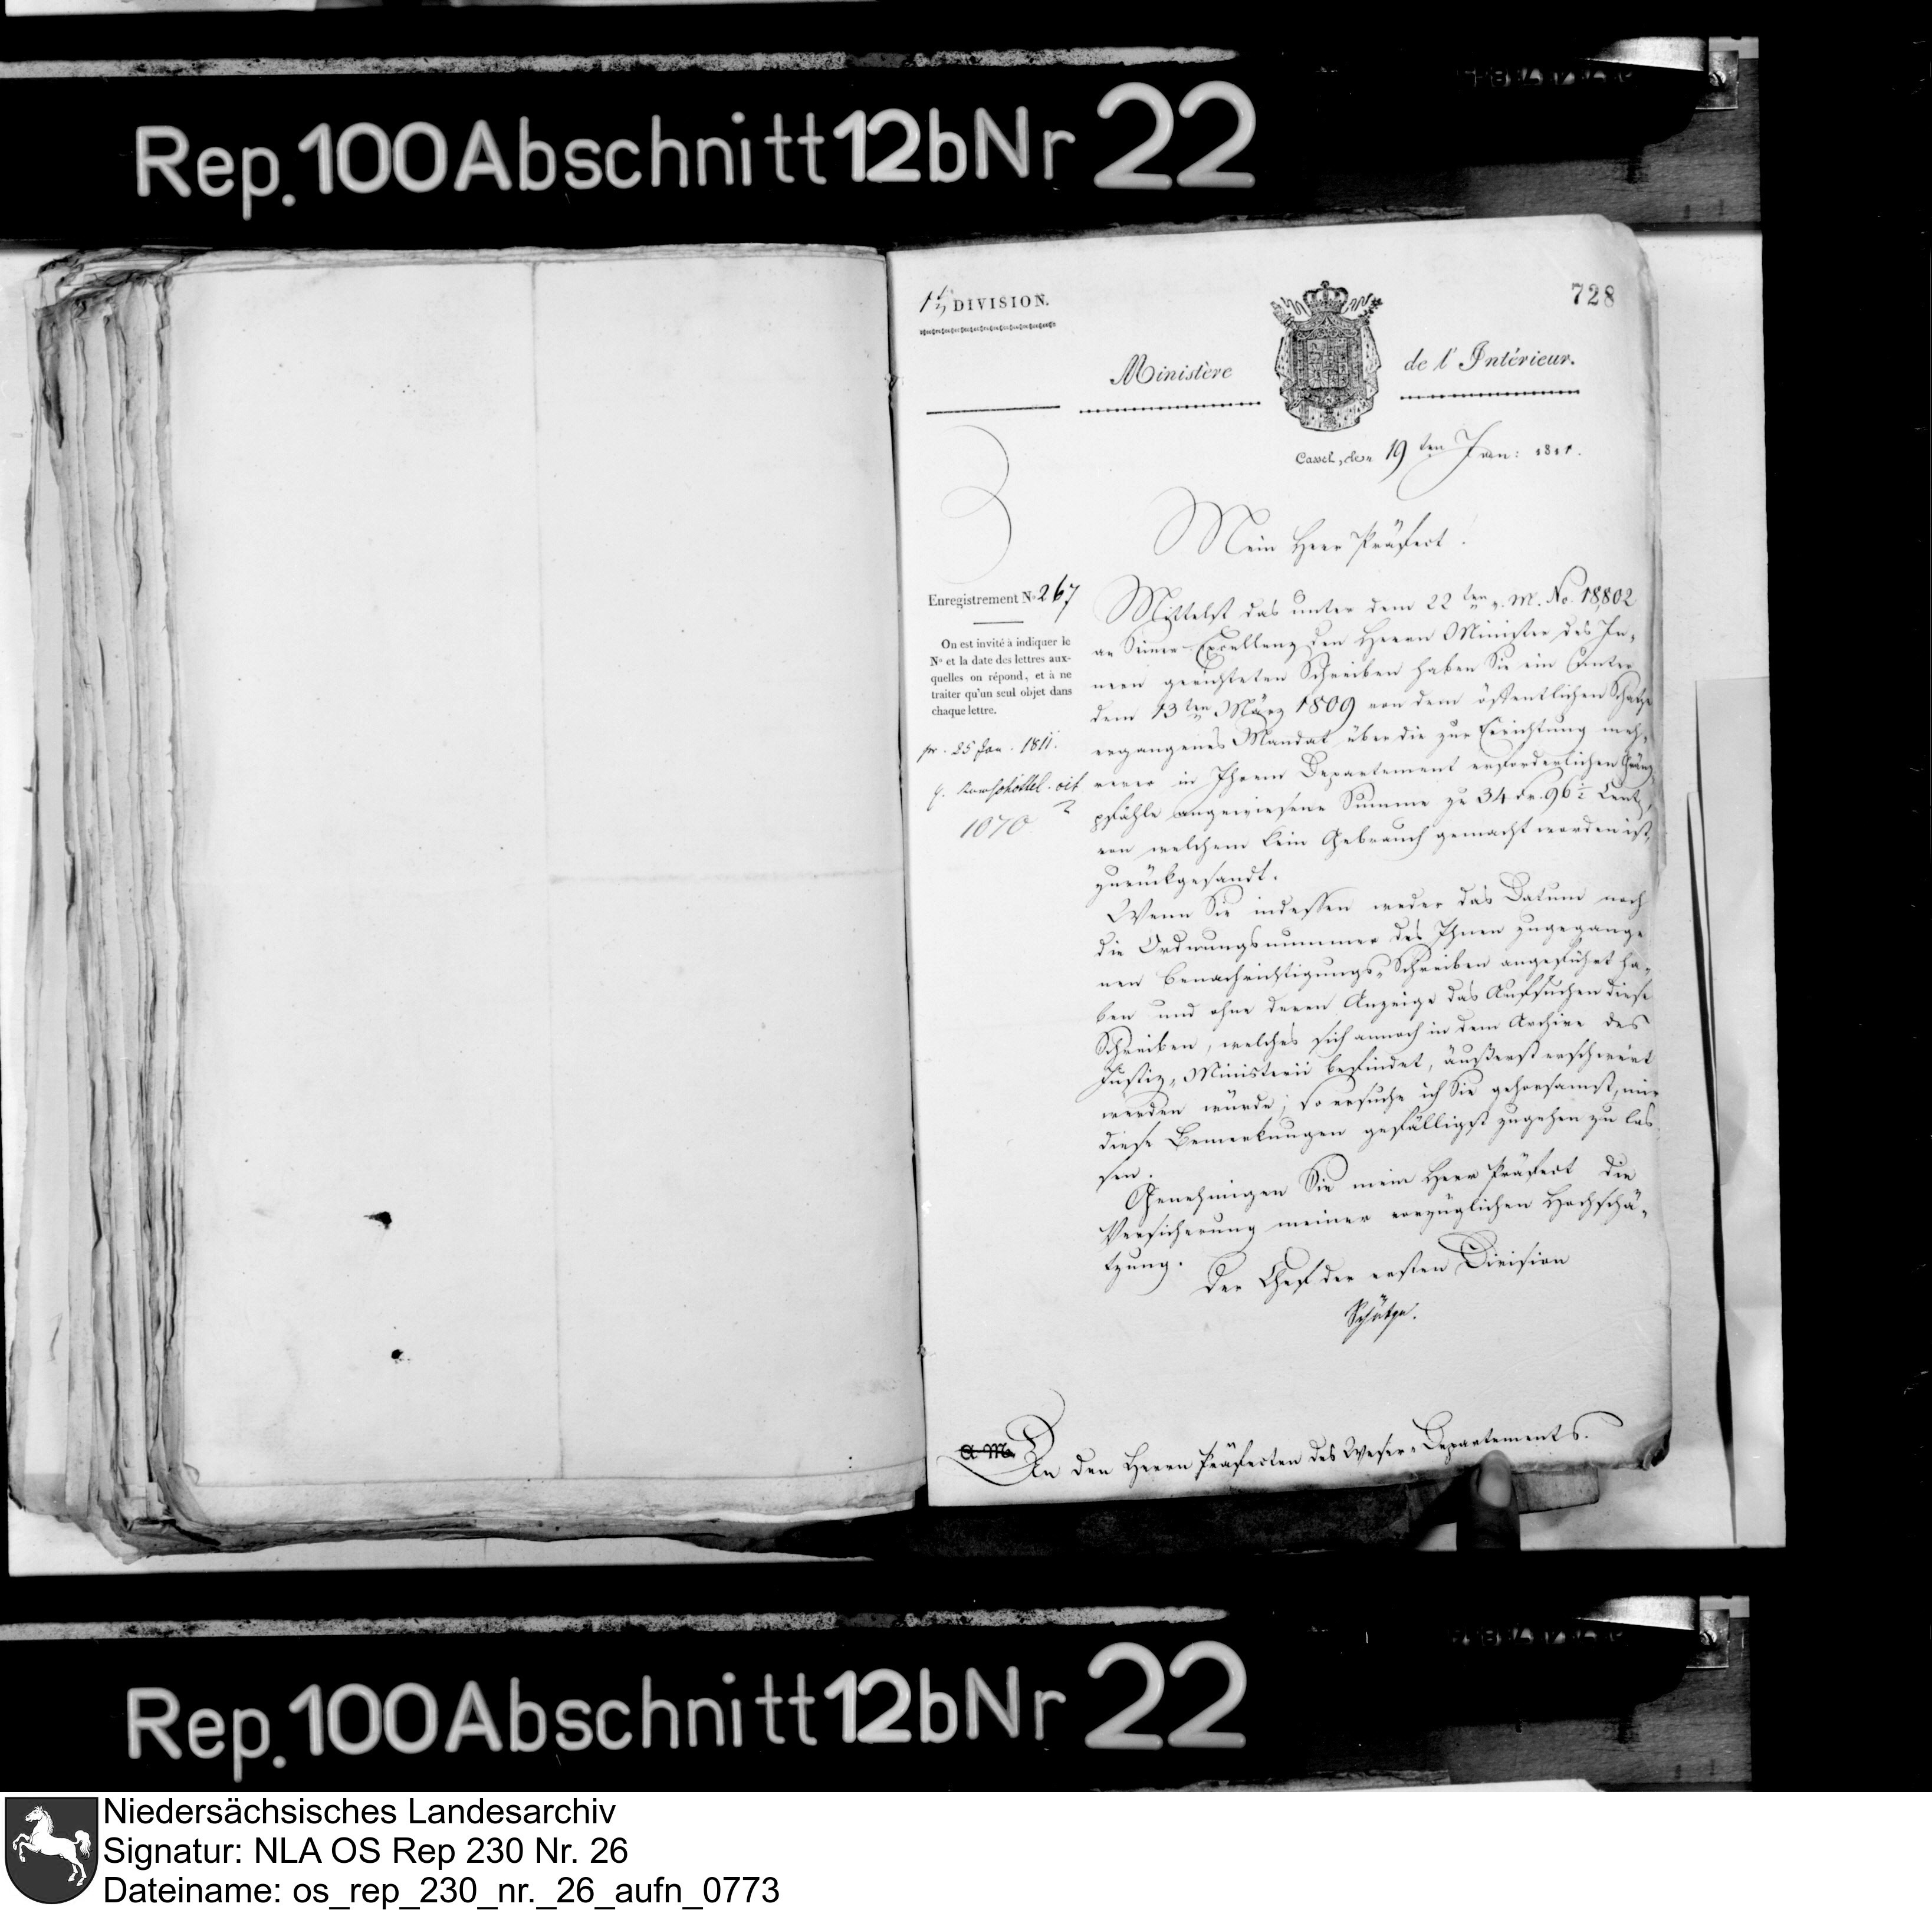 Rep. 100 Abschnitt 12b Nr 22
728
DIVISION.
Ministère de l'Intérieur.
Cassel, den 19ten Jan: 1811.
Mein Herr Präfect!
Enregistrement No 267
On est invité à indiquer le
No et la date des lettres aux-
quelles on répond, et à ne
traiter qu'un seul objet dans
chaque lettre.
pr. 25 Jan. 1811.
1070
Mittelst das unter dem 22ten v. M. No. 18802
an Seiner Excellenz den Herrn Minister des In-
nern gerichteten Schreiben haben Sie ein unter
dem 13ten März 1809 von dem öffentlichen Schatze
ergangenes Mandat über die zur Errichtung meh-
rerer in Ihrem Departement erforderlichen Gränz-
pfähle angewiesene Summe zu 34 Fr. 96½ Cent,
von welchem kein Gebrauch gemacht worden ist,
zurückgesandt.
Wenn Sie indessen weder das Datum noch
die Ordnungsnummer des Ihnen zugegange
nen Benachrichtigungs-Schreiben angeführt ha-
ben und ohne deren Anzeige das Aufsuchen diese
Schreiben, welches sich annoch in dem Archive des
Justiz-Ministerii befindet, äußerst erschwert
werden würde; so ersuche ich Sie gehorsamst, mir
diese Bemerkungen gefälligst zugehen zu las
sen.
Genehmigen Sie mein Herr Präfect die
Versicherung meiner vorzüglichen Hochschä-
tzung.
Der Chef der ersten Division
Schütze.
An den Herrn Präfecten des Weser-Departements.
Rep. 100 Abschnitt 12b Nr 22
Niedersächsisches Landesarchiv
Signatur: NLA OS Rep 230 Nr. 26
Dateiname: os_rep_230_nr._26_aufn_0773